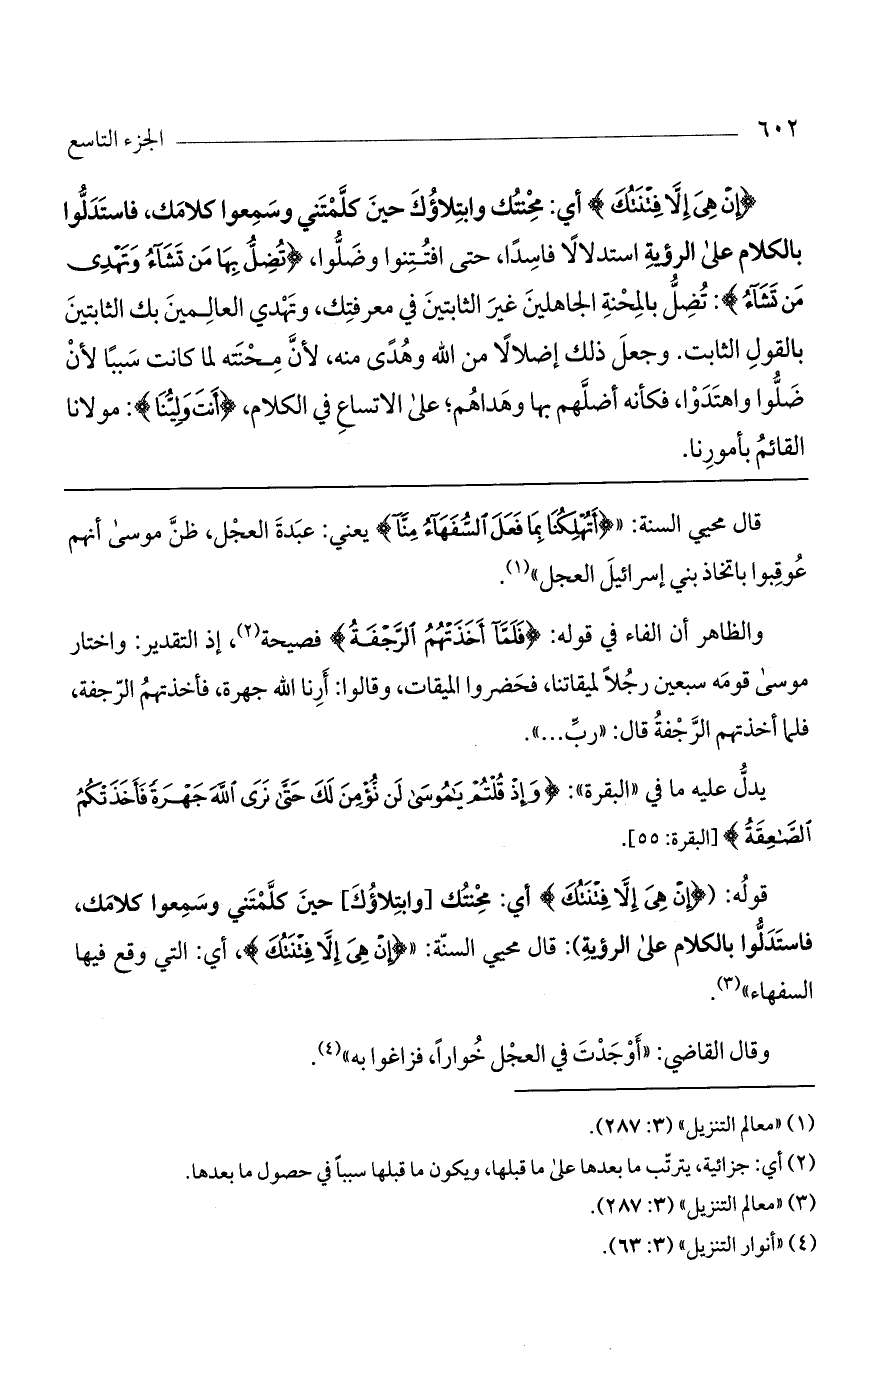 ٦٠٢ الجزء التاسع
﴿إِنْ هِىَ إِلَّا فِتْنَتُكَ﴾ أي: مِحْنتُك وابتِلاؤُكَ حينَ كلَّمْتَني وسَمِعوا كلامَك، فاستَدَلُّوا
بالكلام علىٰ الرؤيةِ استدلالًا فاسِدًا، حتى افتُتِنوا وضَلُّوا، ﴿تُضِلُّ بِهَا مَن تَشَآءُ وَتَهْدِى
مَن تَشَآءُ﴾: تُضِلُّ بالمِحْنةِ الجاهلينَ غيرَ الثابتينَ في معرفتِك، وتَهْدي العالِـمينَ بك الثابتينَ
بالقولِ الثابت. وجعلَ ذلك إضلالًا من الله وهُدًى منه، لأنَّ مِـحْنَته لما كانت سَببًا لأنْ
ضَلُّوا واهتَدَوْا، فكأنه أضلَّهم بها وهَداهُم؛ علىٰ الاتساعِ في الكلام، ﴿أَنتَ وَلِيُّنَا﴾: مولانا
القائمُ بأمورِنا.
قال محيي السنة: «﴿أَتُهْلِكُنَا بِمَا فَعَلَ ٱلسُّفَهَآءُ مِنَّآ﴾ يعني: عبَدةَ العجْل، ظنَّ موسىٰ أنهم
عُوقِبوا باتخاذ بني إسرائيلَ العجل»(١).
والظاهر أن الفاء في قوله: ﴿فَلَمَّآ أَخَذَتْهُمُ ٱلرَّجْفَةُ﴾ فصيحة(٢)، إذ التقدير: واختار
موسىٰ قومَه سبعين رجُلاً لميقاتنا، فحَضروا الميقات، وقالوا: أَرِنا الله جهرة، فأخذتهمُ الرّجفة،
فلما أخذتهم الرَّجْفةُ قال: «ربِّ...».
يدلُّ عليه ما في «البقرة»: ﴿وَإِذْ قُلْتُمْ يَـٰمُوسَىٰ لَن نُّؤْمِنَ لَكَ حَتَّىٰ نَرَى ٱللَّهَ جَهْرَةً فَأَخَذَتْكُمُ
ٱلصَّـٰعِقَةُ﴾ [البقرة: ٥٥].
قولُه: (﴿إِنْ هِىَ إِلَّا فِتْنَتُكَ﴾ أي: مِحْنتُك [وابتِلاؤُكَ] حينَ كلَّمْتَني وسَمِعوا كلامَك،
فاستَدَلُّوا بالكلام علىٰ الرؤيةِ): قال محيي السنّة: «﴿إِنْ هِىَ إِلَّا فِتْنَتُكَ﴾، أي: التي وقع فيها
السفهاء»(٣).
وقال القاضي: «أَوْجَدْتَ في العجْل خُواراً، فزاغوا به»(٤).
(١) «معالم التنزيل» (٣: ٢٨٧).
(٢) أي: جزائية، يترتّب ما بعدها علىٰ ما قبلها، ويكون ما قبلها سبباً في حصول ما بعدها.
(٣) «معالم التنزيل» (٣: ٢٨٧).
(٤) «أنوار التنزيل» (٣: ٦٣).